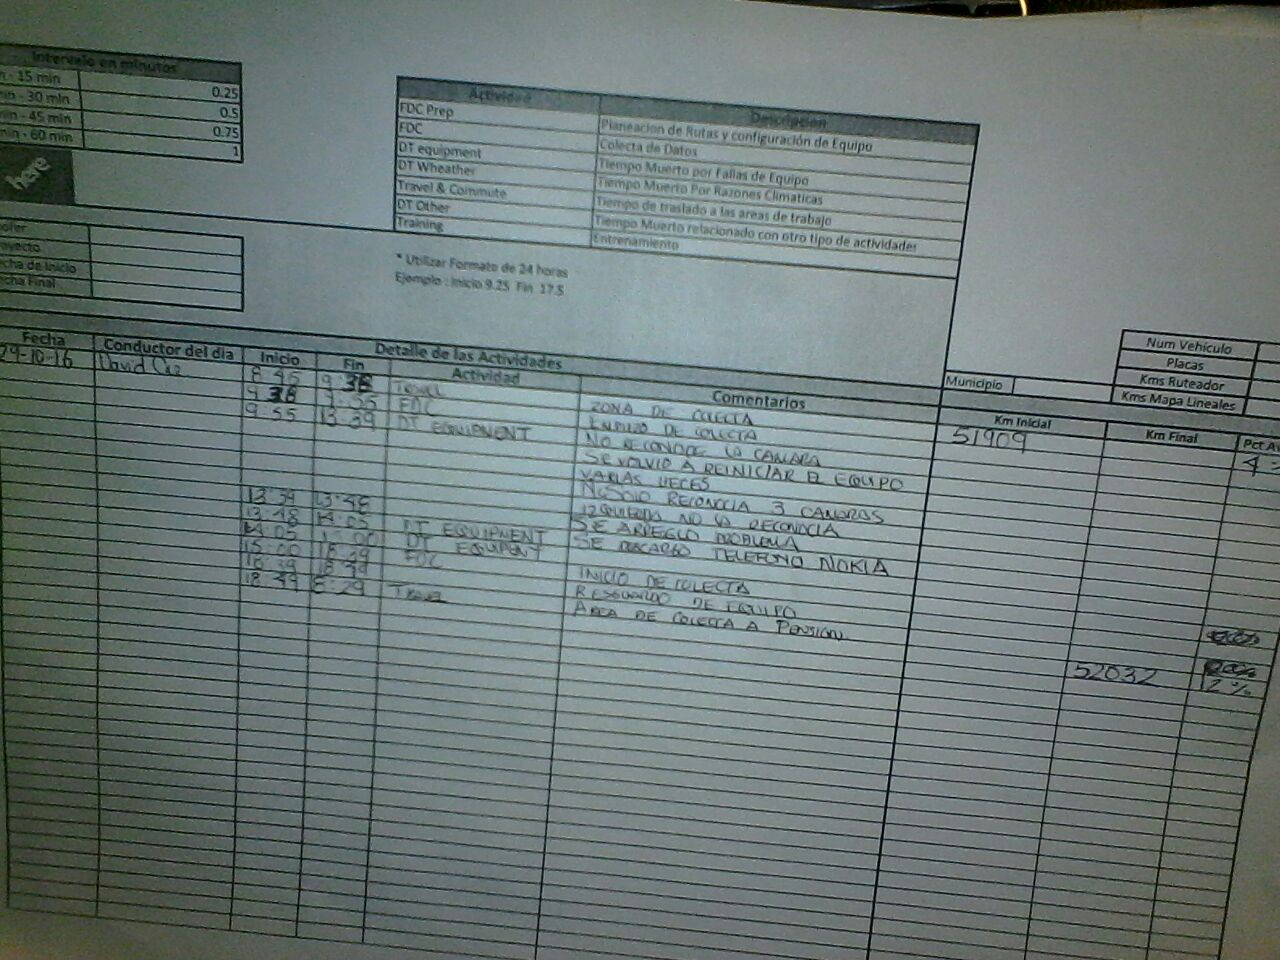 Intervalo en minutos
- 15 min 0.25
- 30 min 0.5
min - 45 min 0.75
min - 60 min 1
here
Actividad Descripcion
FDC Prep Planeacion de Rutas y configuración de Equipo
FDC Colecta de Datos
DT equipment Tiempo Muerto por Fallas de Equipo
DT Wheather Tiempo Muerto Por Razones Climaticas
Travel & Commute Tiempo de traslado a las areas de trabajo
DT Other Tiempo Muerto relacionado con otro tipo de actividades
Training Entrenamiento
* Utilizar Formato de 24 horas
Ejemplo : Inicio 9.25 Fin 17.5
ofer
oyecto
echa de Inicio
echa Final
Num Vehiculo
Placas
Kms Ruteador
Kms Mapa Lineales
Municipio
Detalle de las Actividades
Fecha Conductor del dia Inicio Fin Actividad Comentarios Km Inicial Km Final Pct Av
29-10-16 David 8:45 9:38 Travel ZONA DE COLECTA 51909 4
9:38 9:55 FDC DE COLECTA
9:55 13:39 DT EQUIPMENT NO RECONOCE LA CAMARA
SE VOLVIO A REINICIAR EL EQUIPO
VARIAS VECES
SOLO RECONOCIA 3 CAMARAS
IZQUIERDA NO LA RECONOCIA
13:39 13:48 DT EQUIPMENT SE ARREGLO PROBLEMA
13:48 14:05 DT EQUIPMENT SE DESCARGO TELEFONO NOKIA
14:05 FDC
15:00 18:39 INICIO DE COLECTA
18:39 18:49 RESGUARDO DE EQUIPO
18:49 Travel AREA DE COLECTA A PENSION
52032 12%